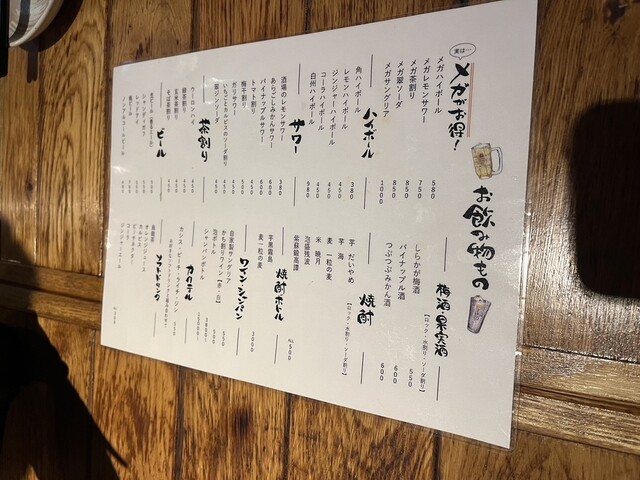 お飲み物もの
実は…
メガがお得！
メガハイボール 580
メガレモンサワー 750
メガ茶割り 850
メガ翠ソーダ 850
メガサングリア 1000
ハイボール
角ハイボール 380
レモンハイボール 450
ジンジャーハイボール 450
コーラハイボール 450
白州ハイボール 980
サワー
酒場のレモンサワー 380
あらごしみかんサワー 600
パイナップルサワー 600
トマト割り 450
梅干割り 450
いちごとカルピスのソーダ割り
ガリサワー
翠ジンソーダ
茶割り
ウーロンハイ 450
緑茶割り 450
玄米茶割り
そば茶割り
ビール
シャンディガフ
レッドアイ
ノンアルコールビール
梅酒・果実酒
【ロック・水割り・ソーダ割り】
しらかが梅酒 550
パイナップル酒 600
つぶつぶみかん酒 600
焼酎
【ロック・水割り・ソーダ割り】
芋 だいやめ
芋 海
麦 一粒の麦
米 暁月
泡盛残波
紫蘇鍛高譚
ALL 500
焼酎ボトル
芋黒霧島
麦一粒の麦
3000
ワイン・シャンパン
自家製サングリア 550
かち割りワイン（赤・白） 500
泡ボトル 3800〜
シャンパンボトル
カクテル
カシス・ピーチ・ライチ・ジン 550
ソフトドリンク
烏龍茶
オレンジジュース
カルピス
ピーチネクター
コーラ
ジンジャーエール